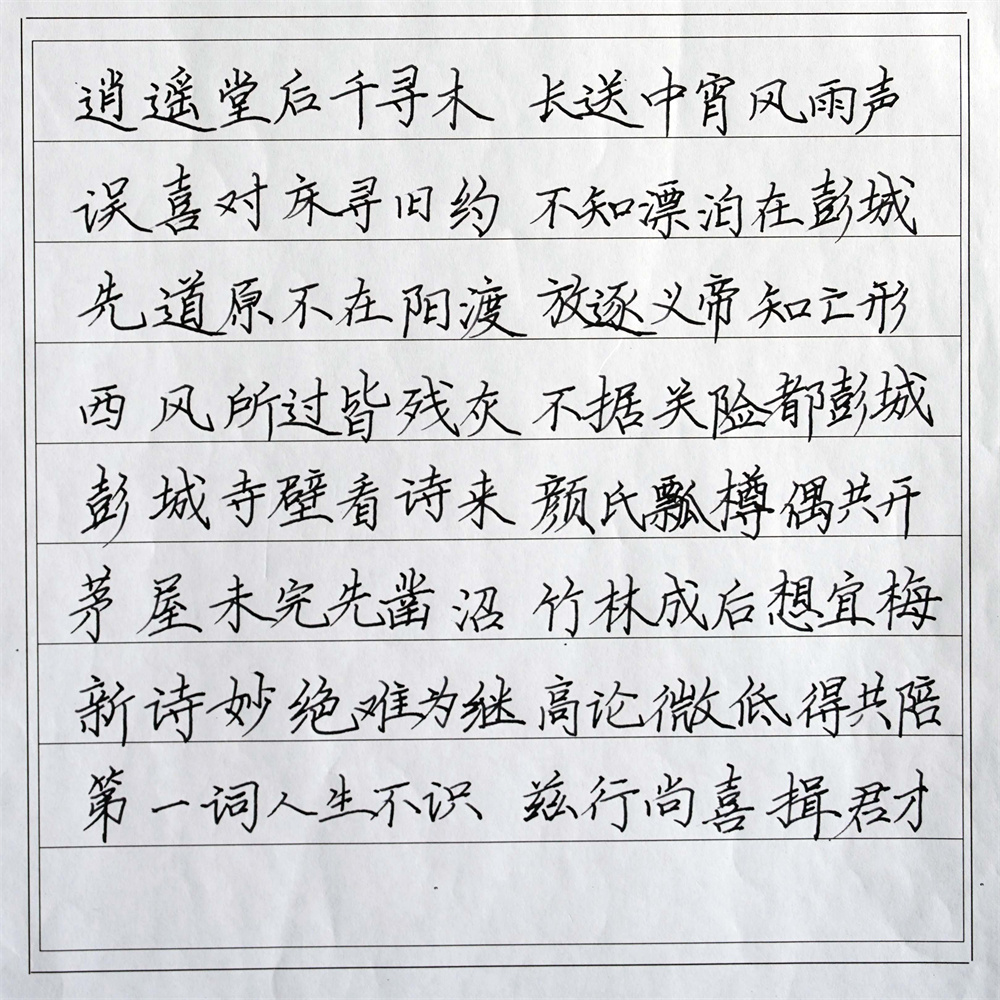 逍遥堂后千寻木 长送中宵风雨声
误喜对床寻旧约 不知漂泊在彭城
先道原不在阳渡 放逐义帝知亡形
西风所过皆残灰 不据关险都彭城
彭城寺壁看诗来 颜氏瓢樽偶共开
茅屋未完先凿沼 竹林成后想宜梅
新诗妙绝难为继 高论微低得共陪
第一词人生不识 兹行尚喜揖君才